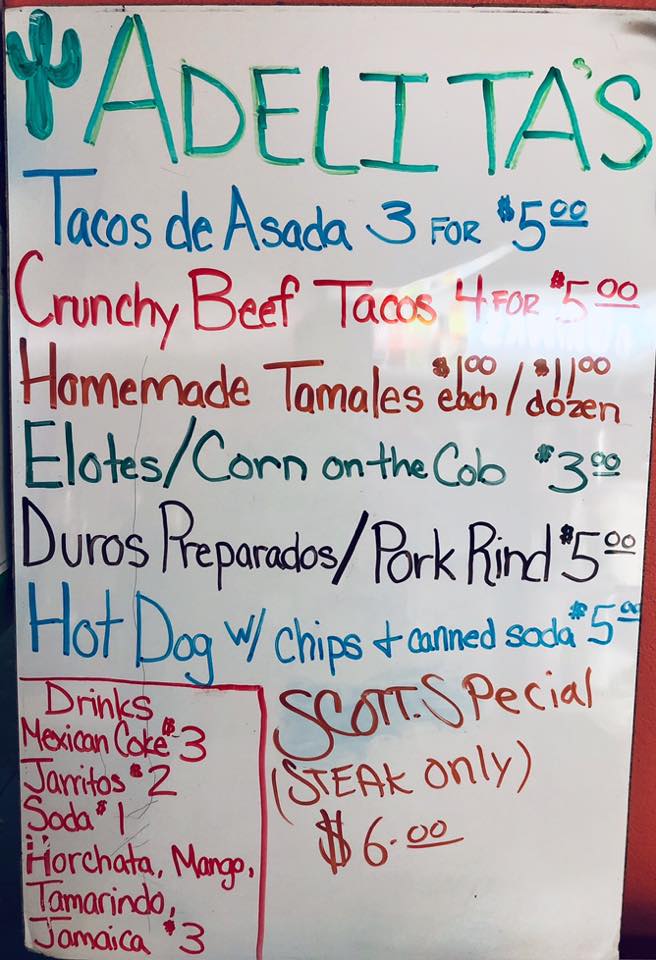 ADELITA'S
Tacos de Asada 3 FOR $5.00
Crunchy Beef Tacos 4 FOR $5.00
Homemade Tamales $1.00 each / $11.00 dozen
Elotes/Corn on the Cob $3.00
Duros Preparados/Pork Rind $5.00
Hot Dog w/ chips + canned soda $5.00
Drinks
Mexican Coke $3
Jarritos $2
Soda $1
Horchata, Mango,
Tamarindo,
Jamaica $3
SCOTT.SPecial
(STEAK only)
$6.00